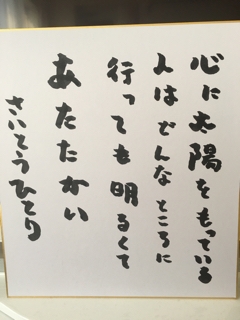 心に太陽をもっている
人はどんなところに
行っても明るくて
あたたかい
さいとうひとり